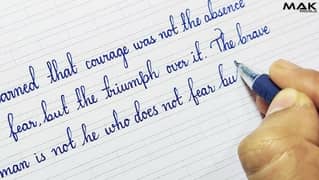 MAK
arned that courage was not the absence
fear, but the triumph over it. The brave
man is not he who does not fear bu